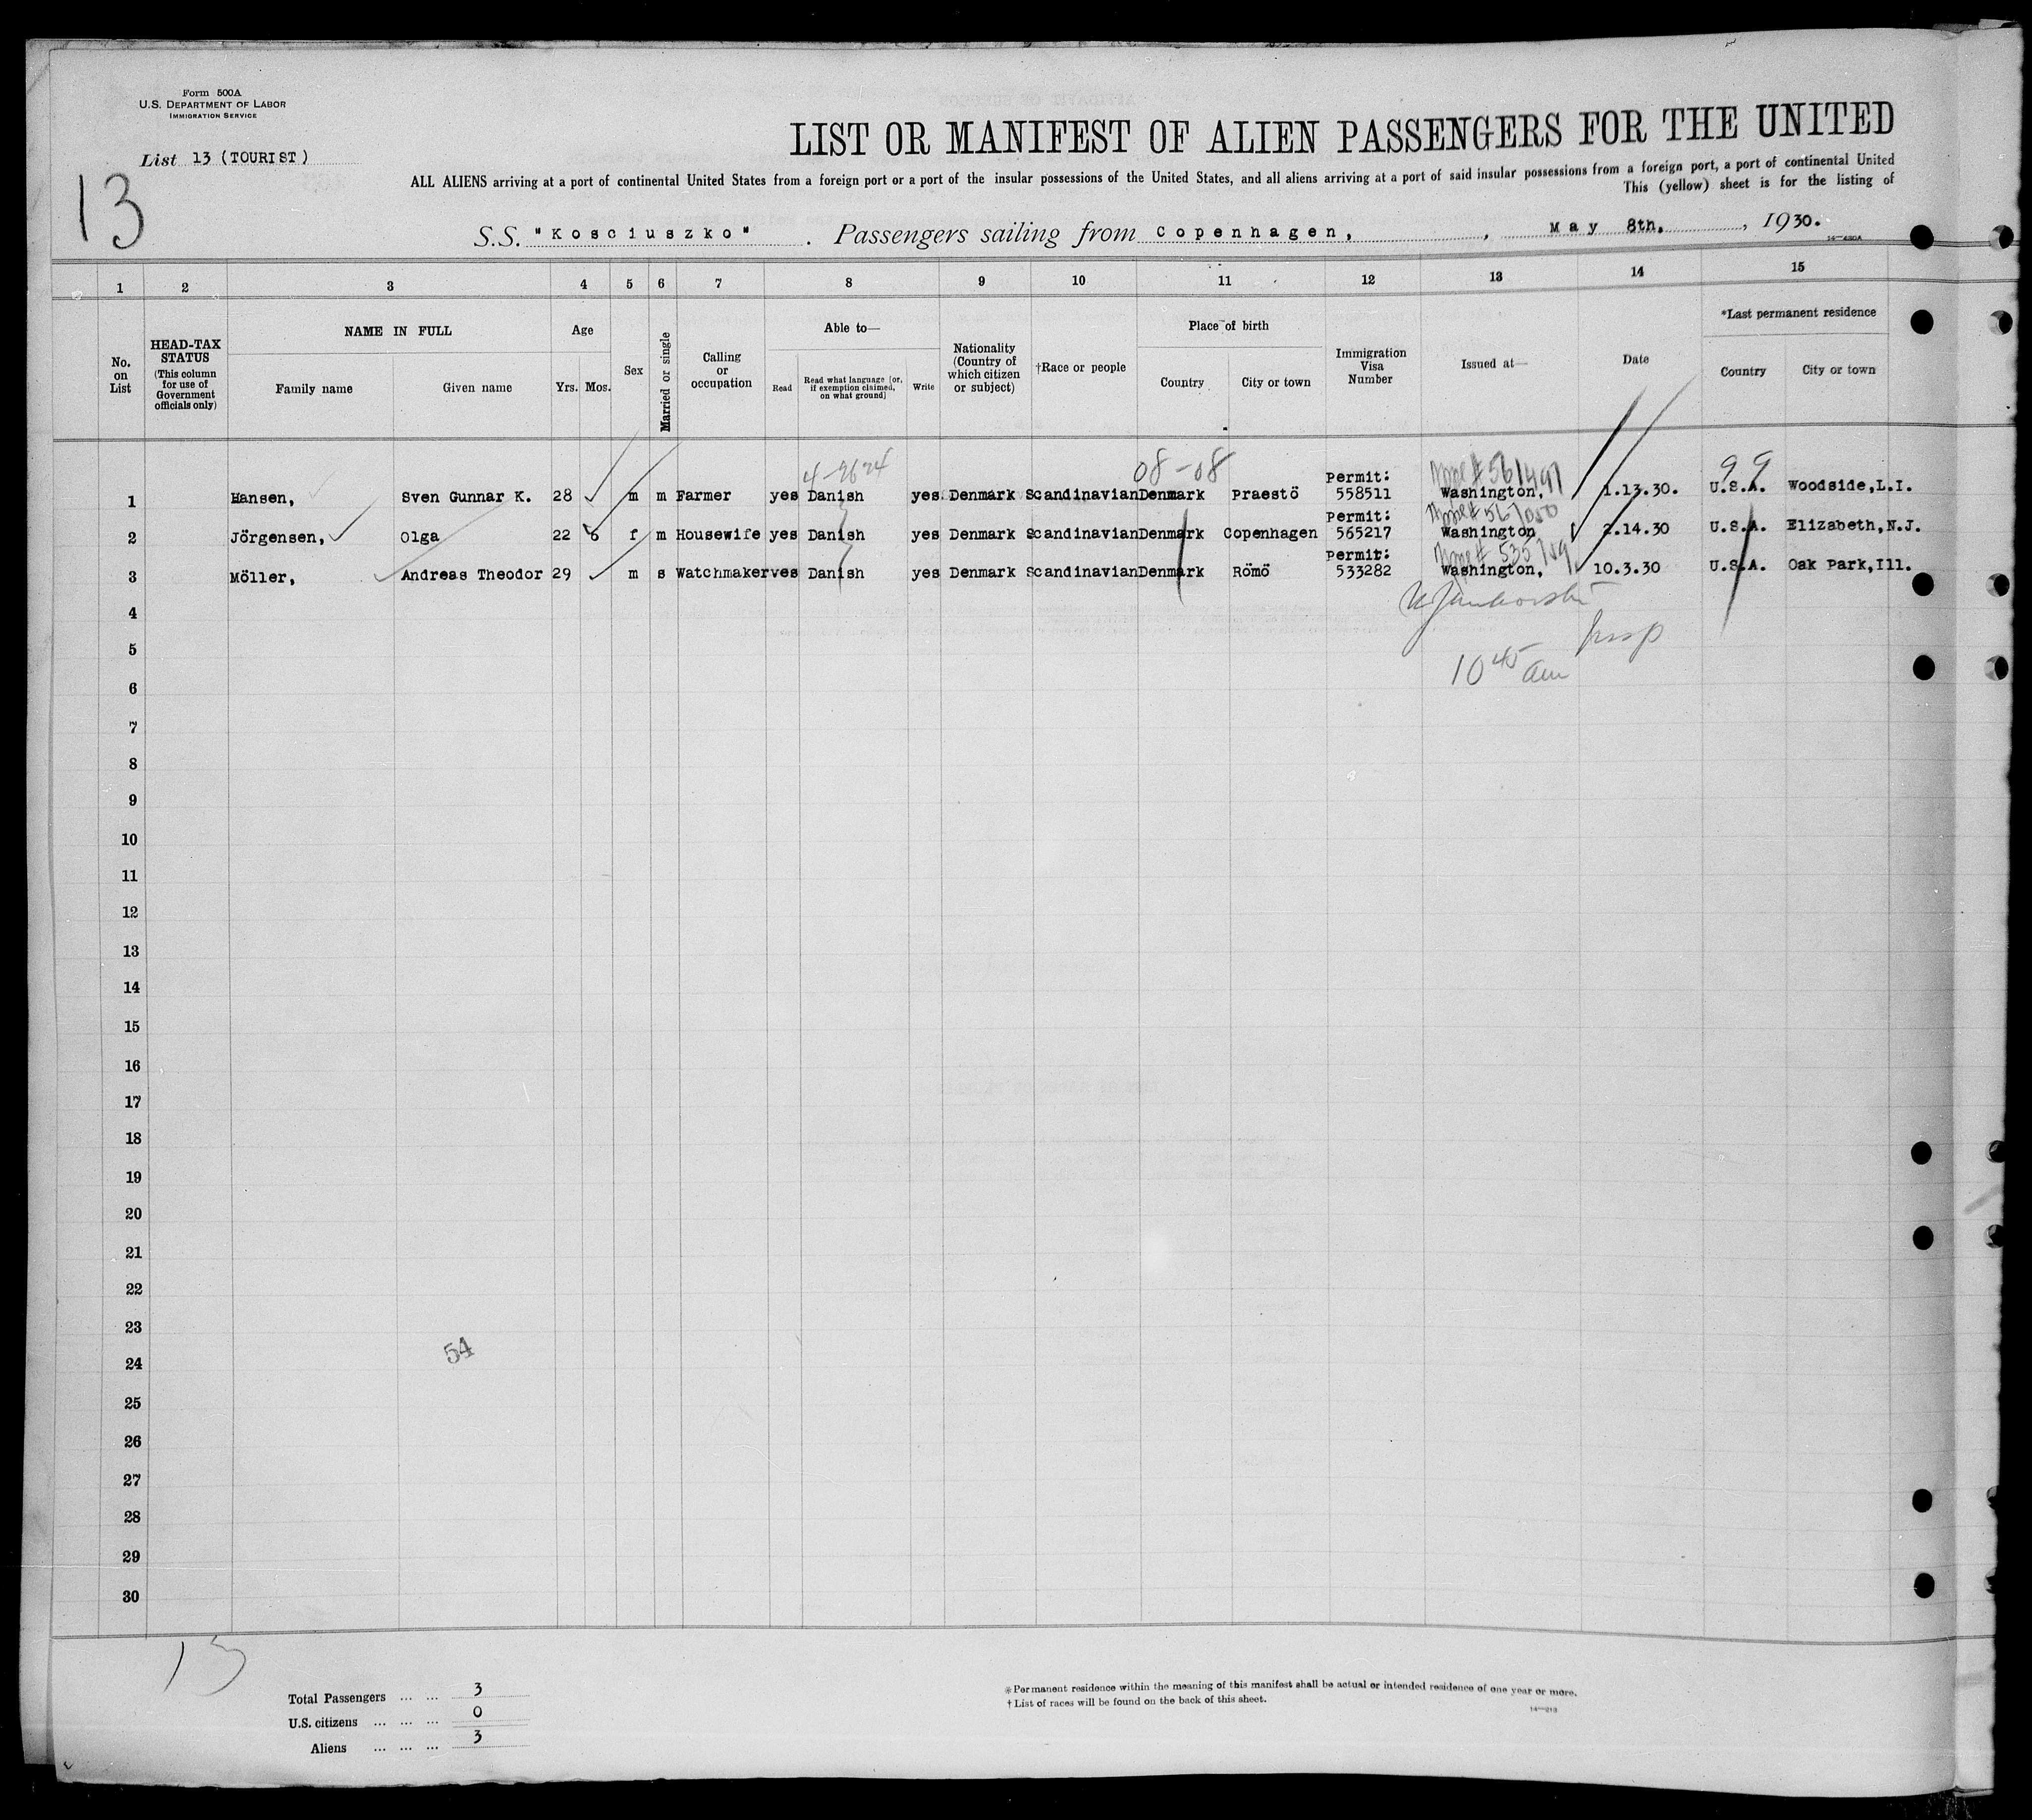 Form 500A
U.S. DEPARTMENT OF LABOR
IMMIGRATION SERVICE
List 13 (TOURIST)
13
LIST OR MANIFEST OF ALIEN PASSENGERS FOR THE UNITED
ALL ALIENS arriving at a port of continental United States from a foreign port or a port of the insular possessions of the United States, and all aliens arriving at a port of said insular possessions from a foreign port, a port of continental United
This (yellow) sheet is for the listing of
S.S. "Kosciuszko" . Passengers sailing from Copenhagen, , May 8th, , 1930.
1 2 3 4 5 6 7 8 9 10 11 12 13 14 15
No. on List
HEAD-TAX STATUS (This column for use of Government officials only)
NAME IN FULL
Family name Given name
Age
Yrs. Mos.
Sex
Married or single
Calling or occupation
Able to—
Read Read what language [or, if exemption claimed, on what ground] Write
Nationality (Country of which citizen or subject)
†Race or people
Place of birth
Country City or town
Immigration Visa Number
Issued at—
Date
*Last permanent residence
Country City or town
08-08
99
1 Hansen, Sven Gunnar K. 28 m m Farmer yes Danish yes Denmark Scandinavian Denmark Praestö Permit: 558511 Washington, 1.13.30. U.S.A. Woodside,L.I.
2 Jörgensen, Olga 22 f m Housewife yes Danish yes Denmark Scandinavian Denmark Copenhagen Permit: 565217 Washington 2.14.30 U.S.A. Elizabeth,N.J.
3 Möller, Andreas Theodor 29 m s Watchmaker yes Danish yes Denmark Scandinavian Denmark Römö Permit: 533282 Washington, 10.3.30 U.S.A. Oak Park,Ill.
4
5
10 45 am
6
7
8
9
10
11
12
13
14
15
16
17
18
19
20
21
22
23
54
24
25
26
27
28
29
30
13
Total Passengers ... ... 3
U.S. citizens ... ... ... 0
Aliens ... ... ... 3
*Permanent residence within the meaning of this manifest shall be actual or intended residence of one year or more.
†List of races will be found on the back of this sheet.